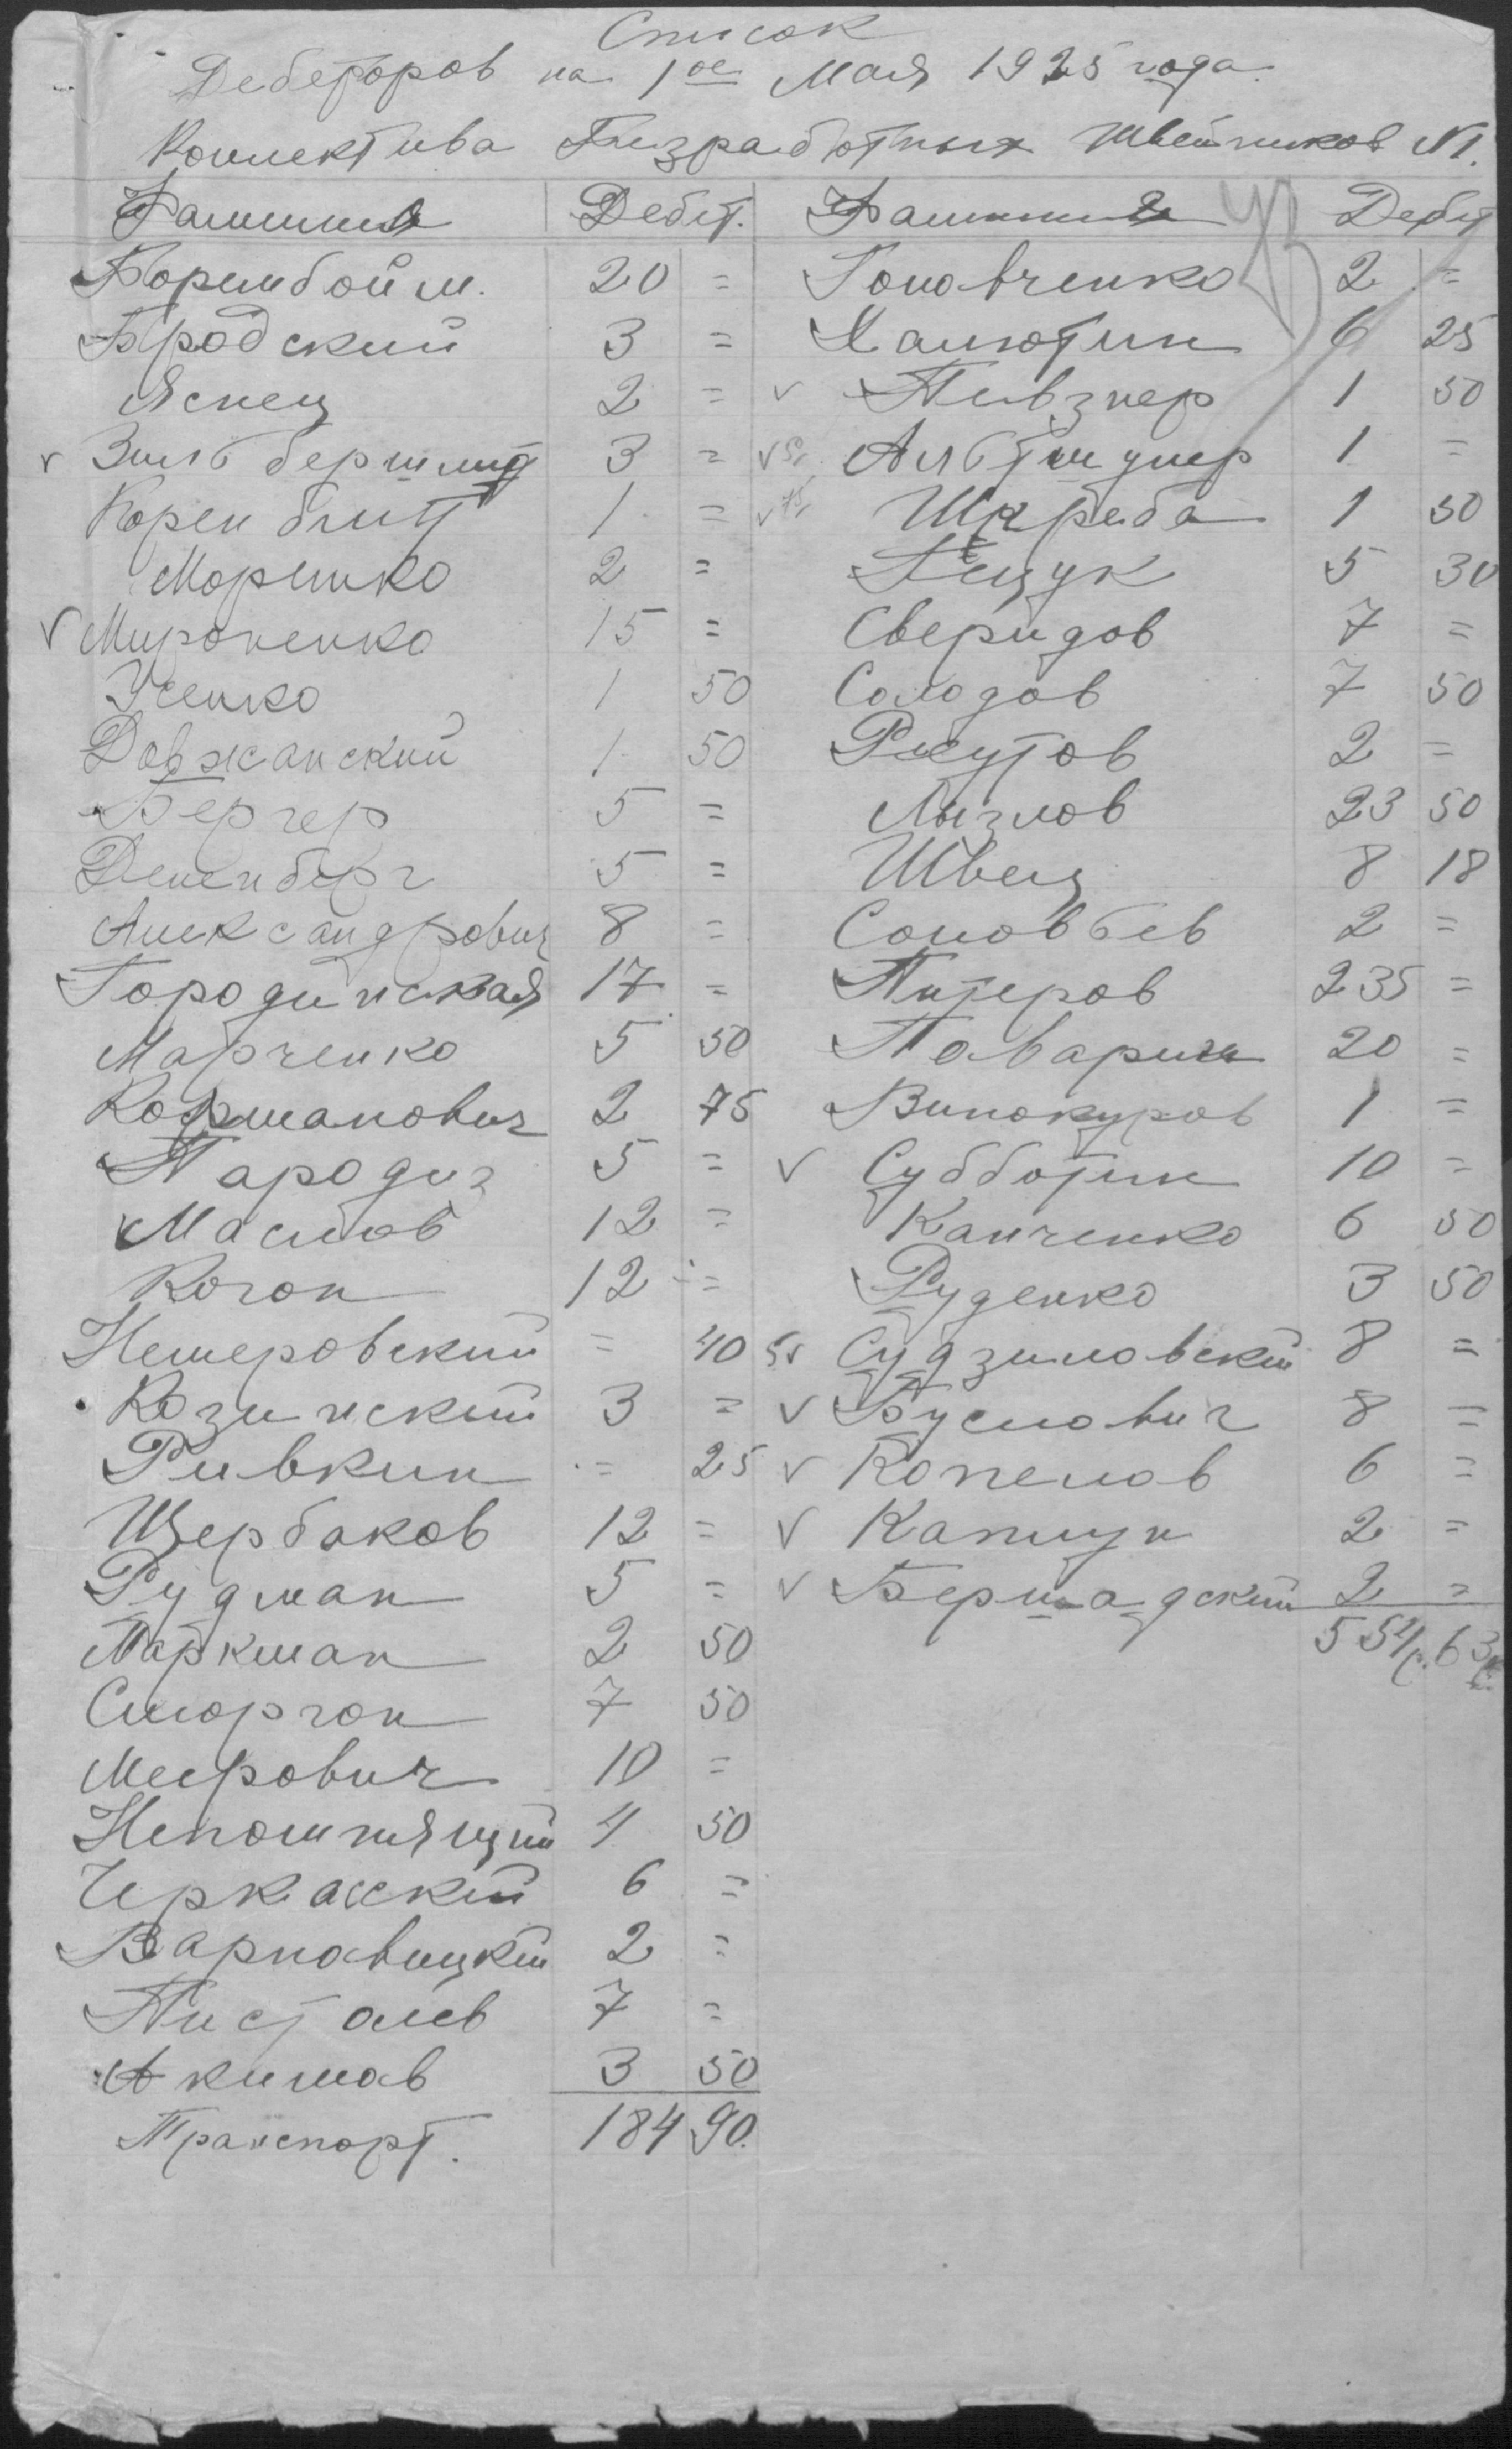 Список
Дебеторов на 1ое Мая 1925 года.
Коллектива Безработных Швейников N1.
Фамилия Дебит.
Боримбойм. 20 =
Бродский 3 =
Яснец 2 =
√ Зильбершмид 3 =
Коренблит 1 =
Моренко 2 =
√ Мироненко 15 =
Усенко 1 50
Довжанский 1 50
Бергер 5 =
Дененберг 5 =
Александрович 8 =
Городинская 17 =
Марченко 5 50
Кофманович 2 75
Пародиз 5 =
Маслов 12 =
Коган 12 =
Немеровский = 40
Козинский 3 =
Ривкин = 25
Щербаков 12 =
Рудман 5 =
Паркман 2 50
Сморгон 7 50
Меерович 10 =
Непомнящий 4 50
Черкасский 6 =
Варновицкий 2 =
Писталев 7 =
Акимов 3 50
Транспорт. 184 90.
Фамилия Дебит
Головченко 2 =
Халютин 6 25
√ Певзнер 1 50
√ Альтшулер 1 =
√ Шкреба 1 50
5 30
Сверидов 7 =
Солодов 7 50
Ржутов 2 =
Лызлов 23 50
Швец 8 18
Соловьев 2 =
Питеров 235 =
Поварин 20 =
Винокуров 1 =
√ Субботин 10 =
Канченко 6 50
Руденко 3 50
√ Судзиловский 8 =
√ Буслович 8 =
√ Копелов 6 =
√ Каплун 2 =
√ Бершадский 2 =
554р. 63к.